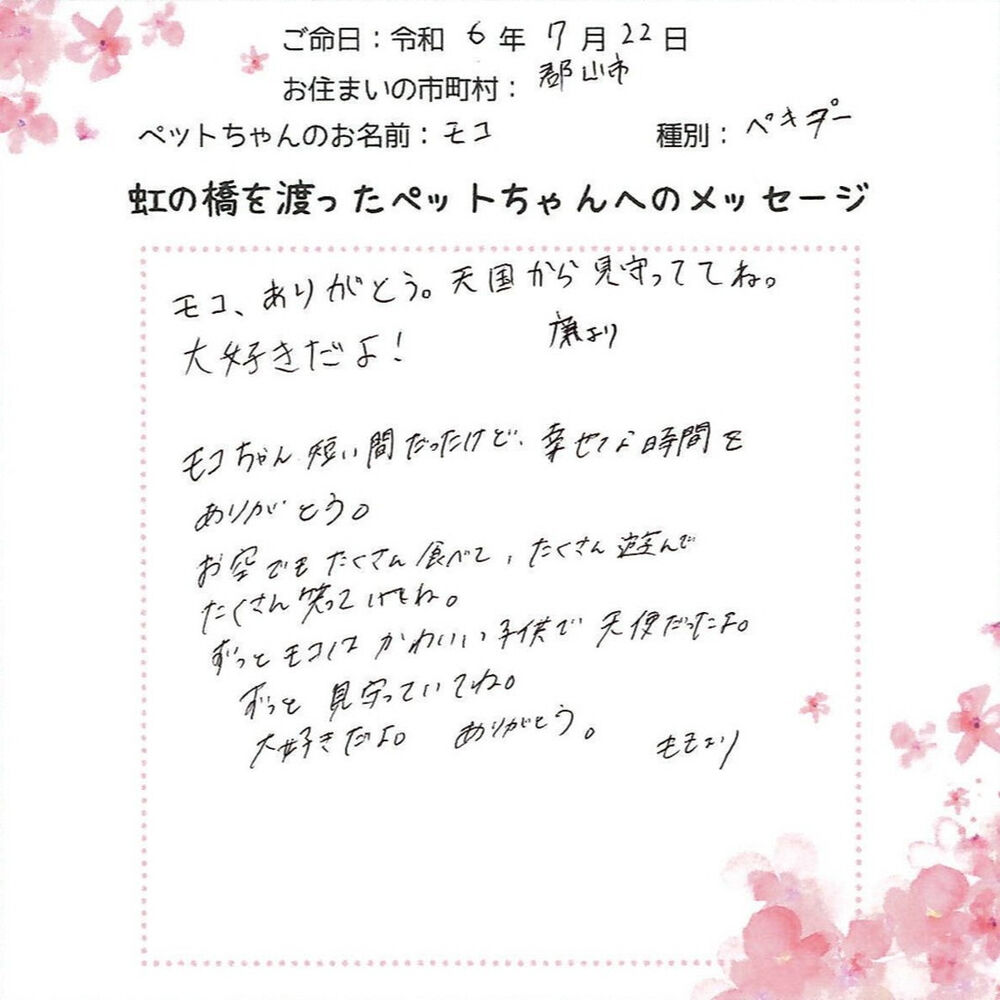 ご命日：令和 6 年 7 月 22 日
お住まいの市町村： 郡山市
ペットちゃんのお名前：モコ 種別：ペキプー
虹の橋を渡ったペットちゃんへのメッセージ
モコ、ありがとう。天国から見守っててね。
大好きだよ！ より
モコちゃん 短い間だったけど、幸せな時間を
ありがとう。
お空でもたくさん食べて、たくさん遊んで
たくさん笑っててね。
ずっとモコはかわいい子供で天使だったよ。
ずっと見守っていてね。
大好きだよ。 ありがとう。 ももより